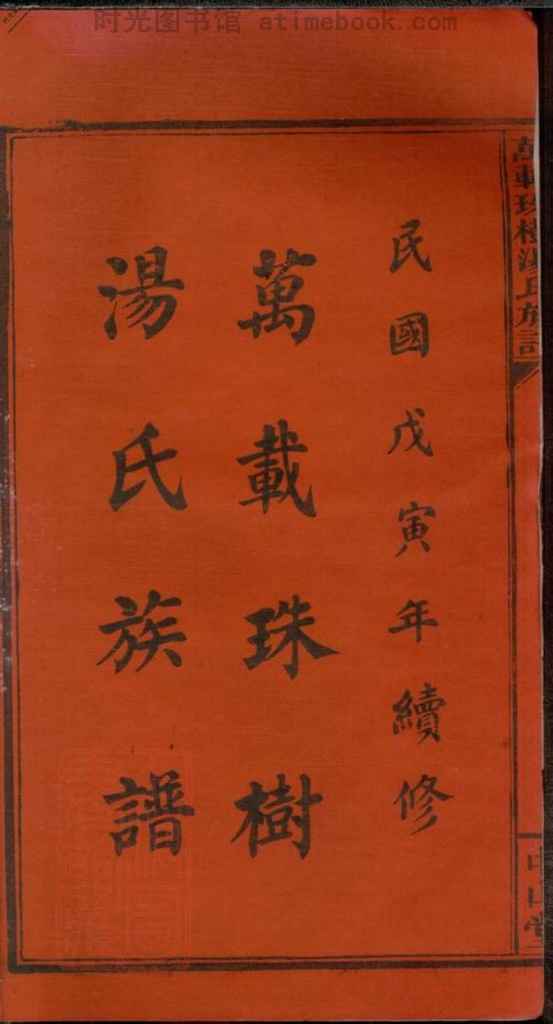 时光图书馆 atimebook.com
萬載珠樹湯氏族譜
民國戊寅年續修
萬載珠樹
湯氏族譜